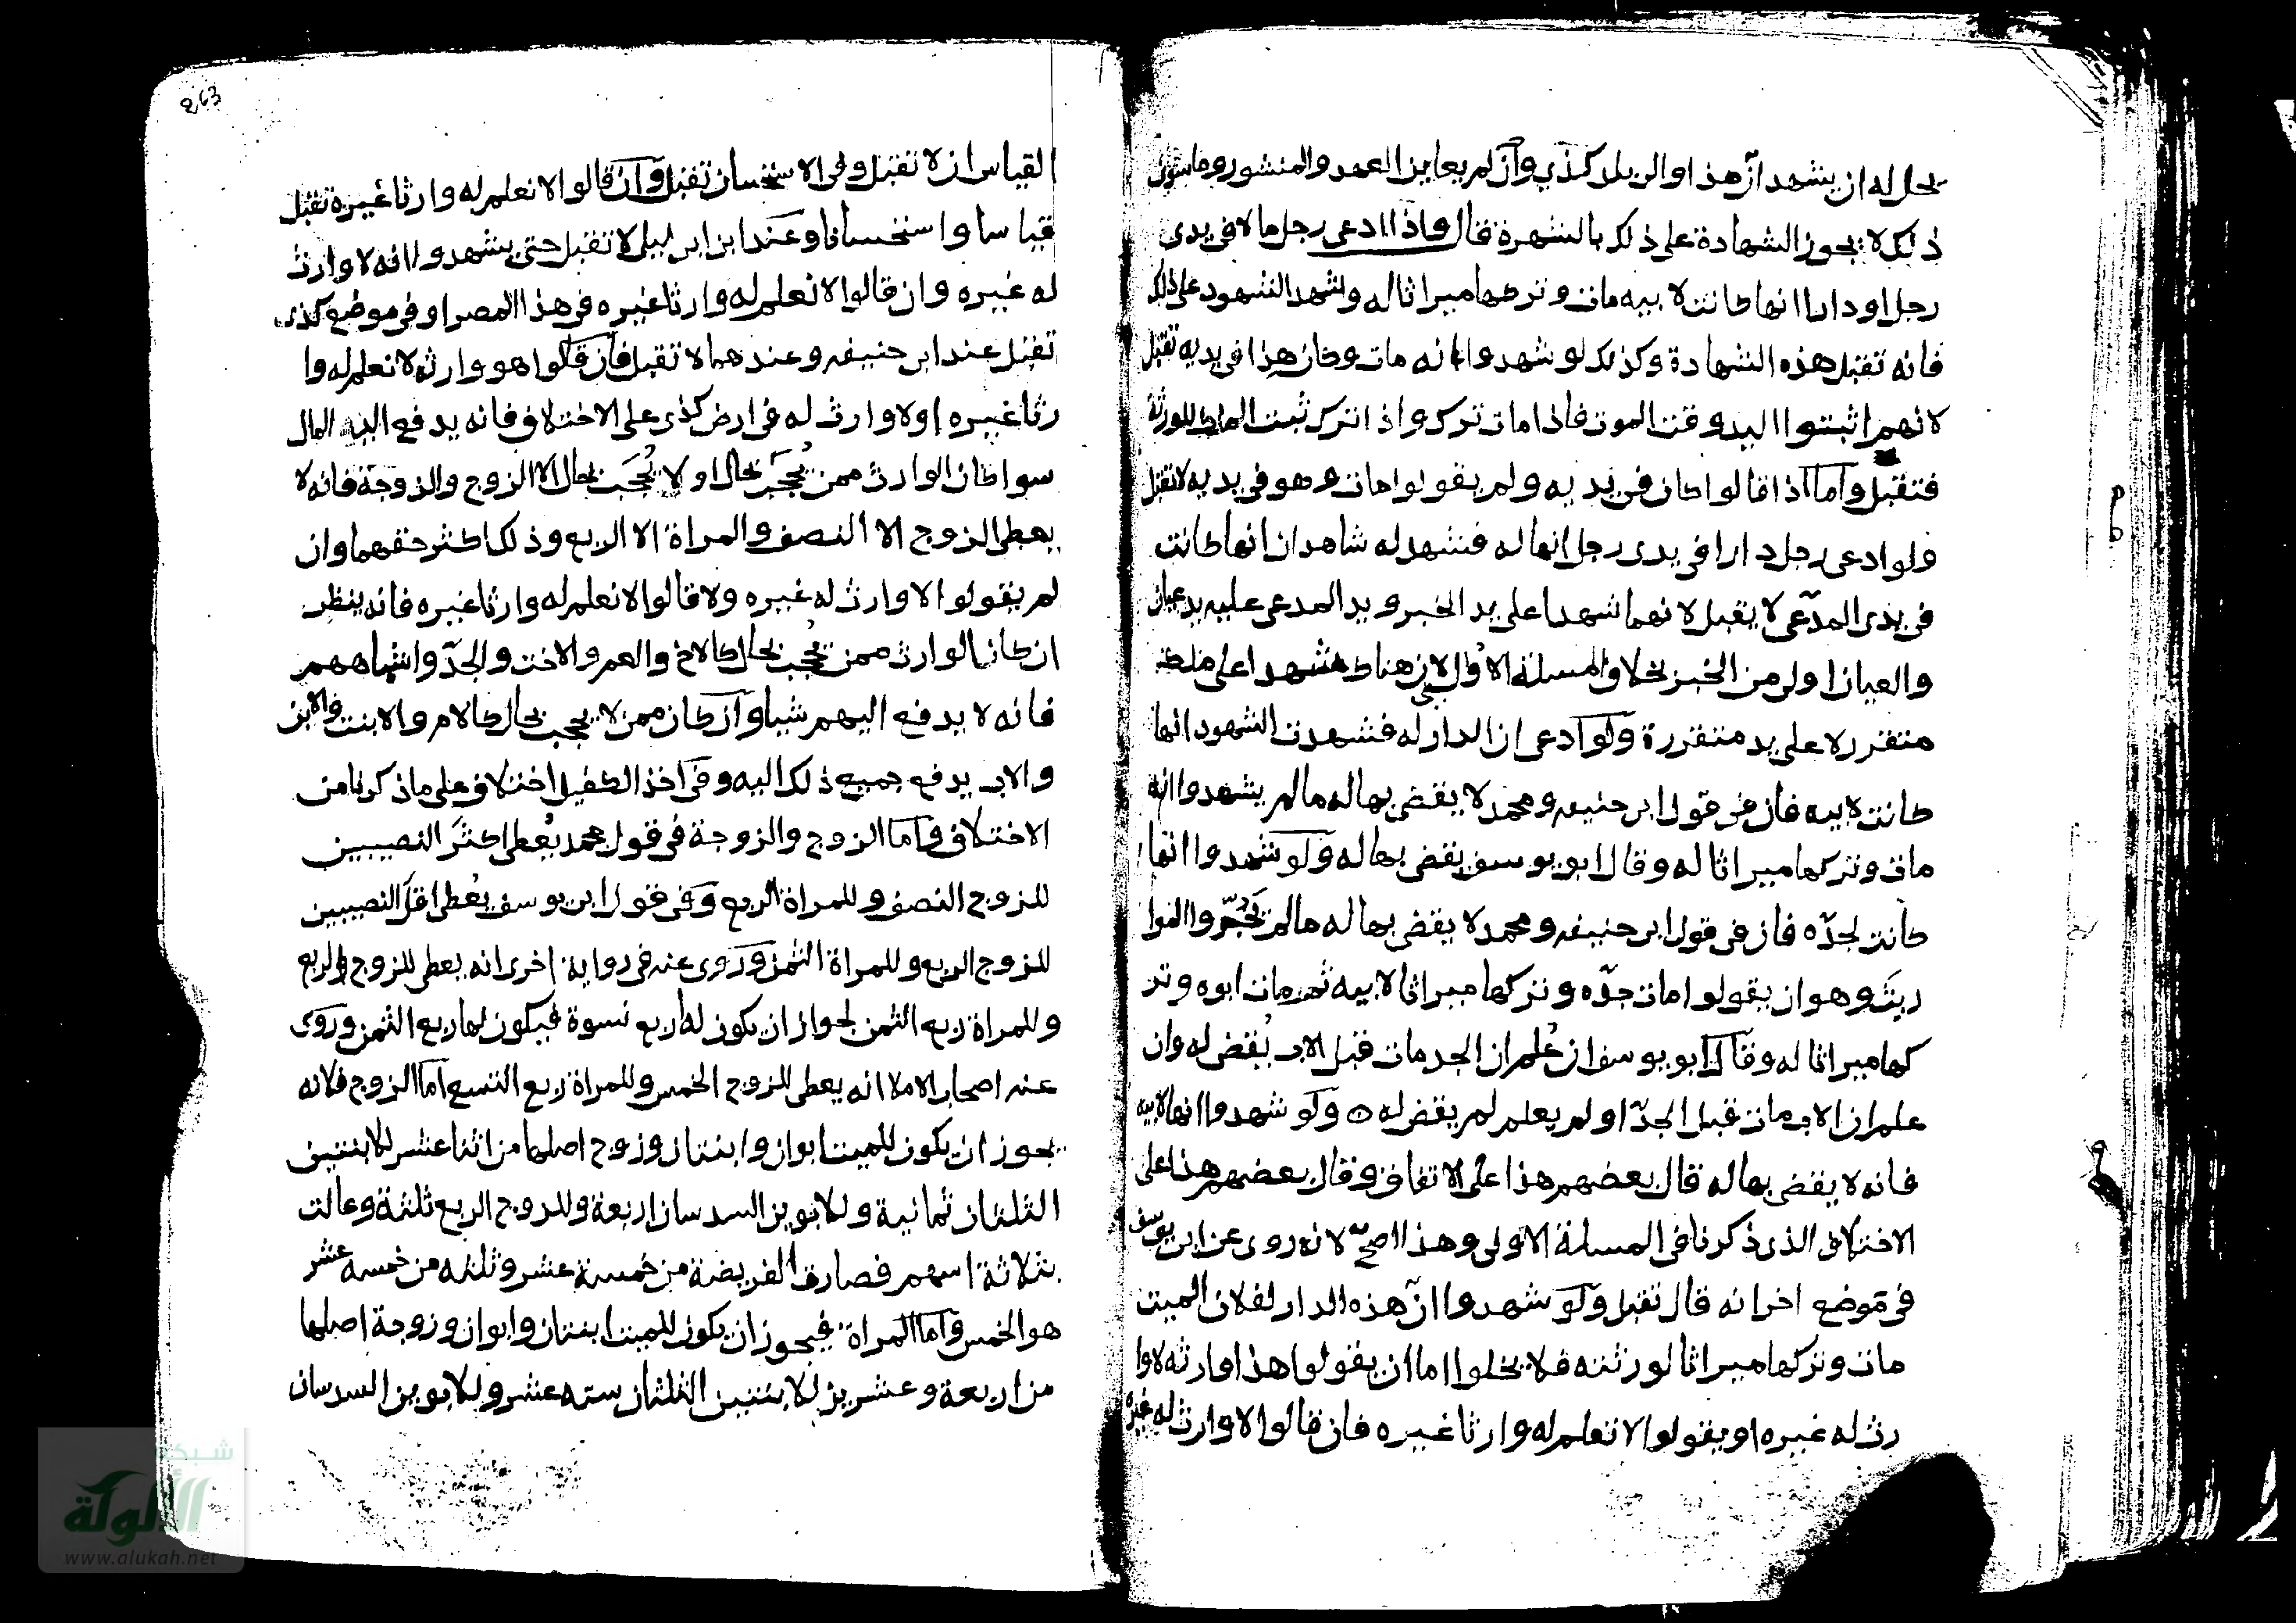 يحل له ان يشهد ان هذا والى بلد كذى وان لم يعاين العهد والمنشور وما سوى
ذلك لا يجوز الشهادة على ذلك بالشهرة قال واذا ادعى رجل مالا في يدى
رجل او دارا انها كانت لابيه مات وتركها ميراثا له وشهد الشهود على ذلك
فانه تقبل هذه الشهادة وكذلك لو شهدوا انه مات وكان هذا في يديه تقبل
لانهم اثبتوا اليد وقت الموت فاذا مات ترك واذا ترك ثبت الملك للورثة
فتقبل واما اذا قالوا كان في يديه ولم يقولوا مات وهو في يديه لا تقبل
ولو ادعى رجل دارا في يدى رجل انها له فشهد له شاهدان انها كانت
في يدى المدعى لا يقبل لانهما شهدا على يد الخبر ويد المدعى عليه يد عيان
والعيان اولى من الخبر بخلاف المسلة الاولى لان هناك شهدا على ملك
متقرر لا على يد متقررة ولو ادعى ان الدار له فشهدت الشهود انها
كانت لابيه فان في قول ابى حنيفه ومحمد لا يقضى بها له ما لم يشهدوا انه
مات وتركها ميراثا له وقال ابو يوسف يقضى بها له ولو شهدوا انها
كانت لجده فان في قول ابى حنيفه ومحمد لا يقضى بها له ما لم يجروا الموا
ريث وهو ان يقولوا مات جده وتركها ميراثا لابيه ثم مات ابوه وتر
كها ميراثا له وقال ابو يوسف ان علم ان الجد مات قبل الاب يقضى له وان
علم ان الاب مات قبل الجد او لم يعلم لم يقض له ولو شهدوا انها لابيه
فانه لا يقضى بها له قال بعضهم هذا على الاتفاق وقال بعضهم هذا على
الاختلاف الذى ذكرنا في المسلة الاولى وهذا اصح لانه روى عن ابى يوسف
في موضع اخر انه قال تقبل ولو شهدوا ان هذه الدار لفلان الميت
مات وتركها ميراثا لورثته فلا يخلوا اما ان يقولوا هذا وارثه لا وا
رث له غيره او يقولوا لا نعلم له وارثا غيره فان قالوا لا وارث له غيره
263
القياس ان لا تقبل وفى الاستحسان تقبل وان قالوا لا نعلم له وارثا غيره تقبل
قياسا واستحسانا وعند ابن ابى ليلى لا تقبل حتى يشهدوا انه لا وارث
له غيره وان قالوا لا نعلم له وارثا غيره في هذا المصر او في موضع كذى
تقبل عند ابى حنيفه وعندهما لا تقبل فان قالوا هو وارثه لا نعلم له وا
رثا غيره او لا وارث له في ارض كذى على الاختلاف فانه يدفع اليه المال
سوا كان الوارث ممن يحجب بحال او لا يحجب بحال الا الزوج والزوجة فانه لا
يعطى الزوج الا النصف والمراة الا الربع وذلك اكثر حقهما وان
لم يقولوا لا وارث له غيره ولا قالوا لا نعلم له وارثا غيره فانه ينظر
ان كان الوارث ممن يحجب بحال كالاخ والعم والاخت والجد واشباههم
فانه لا يدفع اليهم شيا وان كان ممن لا يحجب بحال كالام والابنت والابن
والاب يدفع جميع ذلك اليه وفى اخذ الكفيل اختلاف على ما ذكرنا من
الاختلاف واما الزوج والزوجة في قول محمد يعطى اكثر النصيبين
للزوج النصف وللمراة الربع وفى قول ابى يوسف يعطى اقل النصيبين
للزوج الربع وللمراة الثمن وروى عنه في رواية اخرى انه يعطى للزوج الربع
وللمراة ربع الثمن لجواز ان يكون له اربع نسوة فيكون لها ربع الثمن وروى
عنه اصحاب الاملا انه يعطى للزوج الخمس وللمراة ربع التسع اما الزوج فلانه
يجوز ان يكون للميت ابوان وابنتان وزوج اصلها من اثنا عشر للابنتين
الثلثان ثمانية وللابوين السدسان اربعة وللزوج الربع ثلثة وعالت
بثلاثة اسهم فصارت الفريضة من خمسة عشر وثلثه من خمسه عشر
هو الخمس واما المراة فيجوز ان يكون للميت ابنتان وابوان وزوجة اصلها
من اربعة وعشرين للابنتين الثلثان سته عشر وللابوين السدسان
شبكة
الألوكة
www.alukah.net